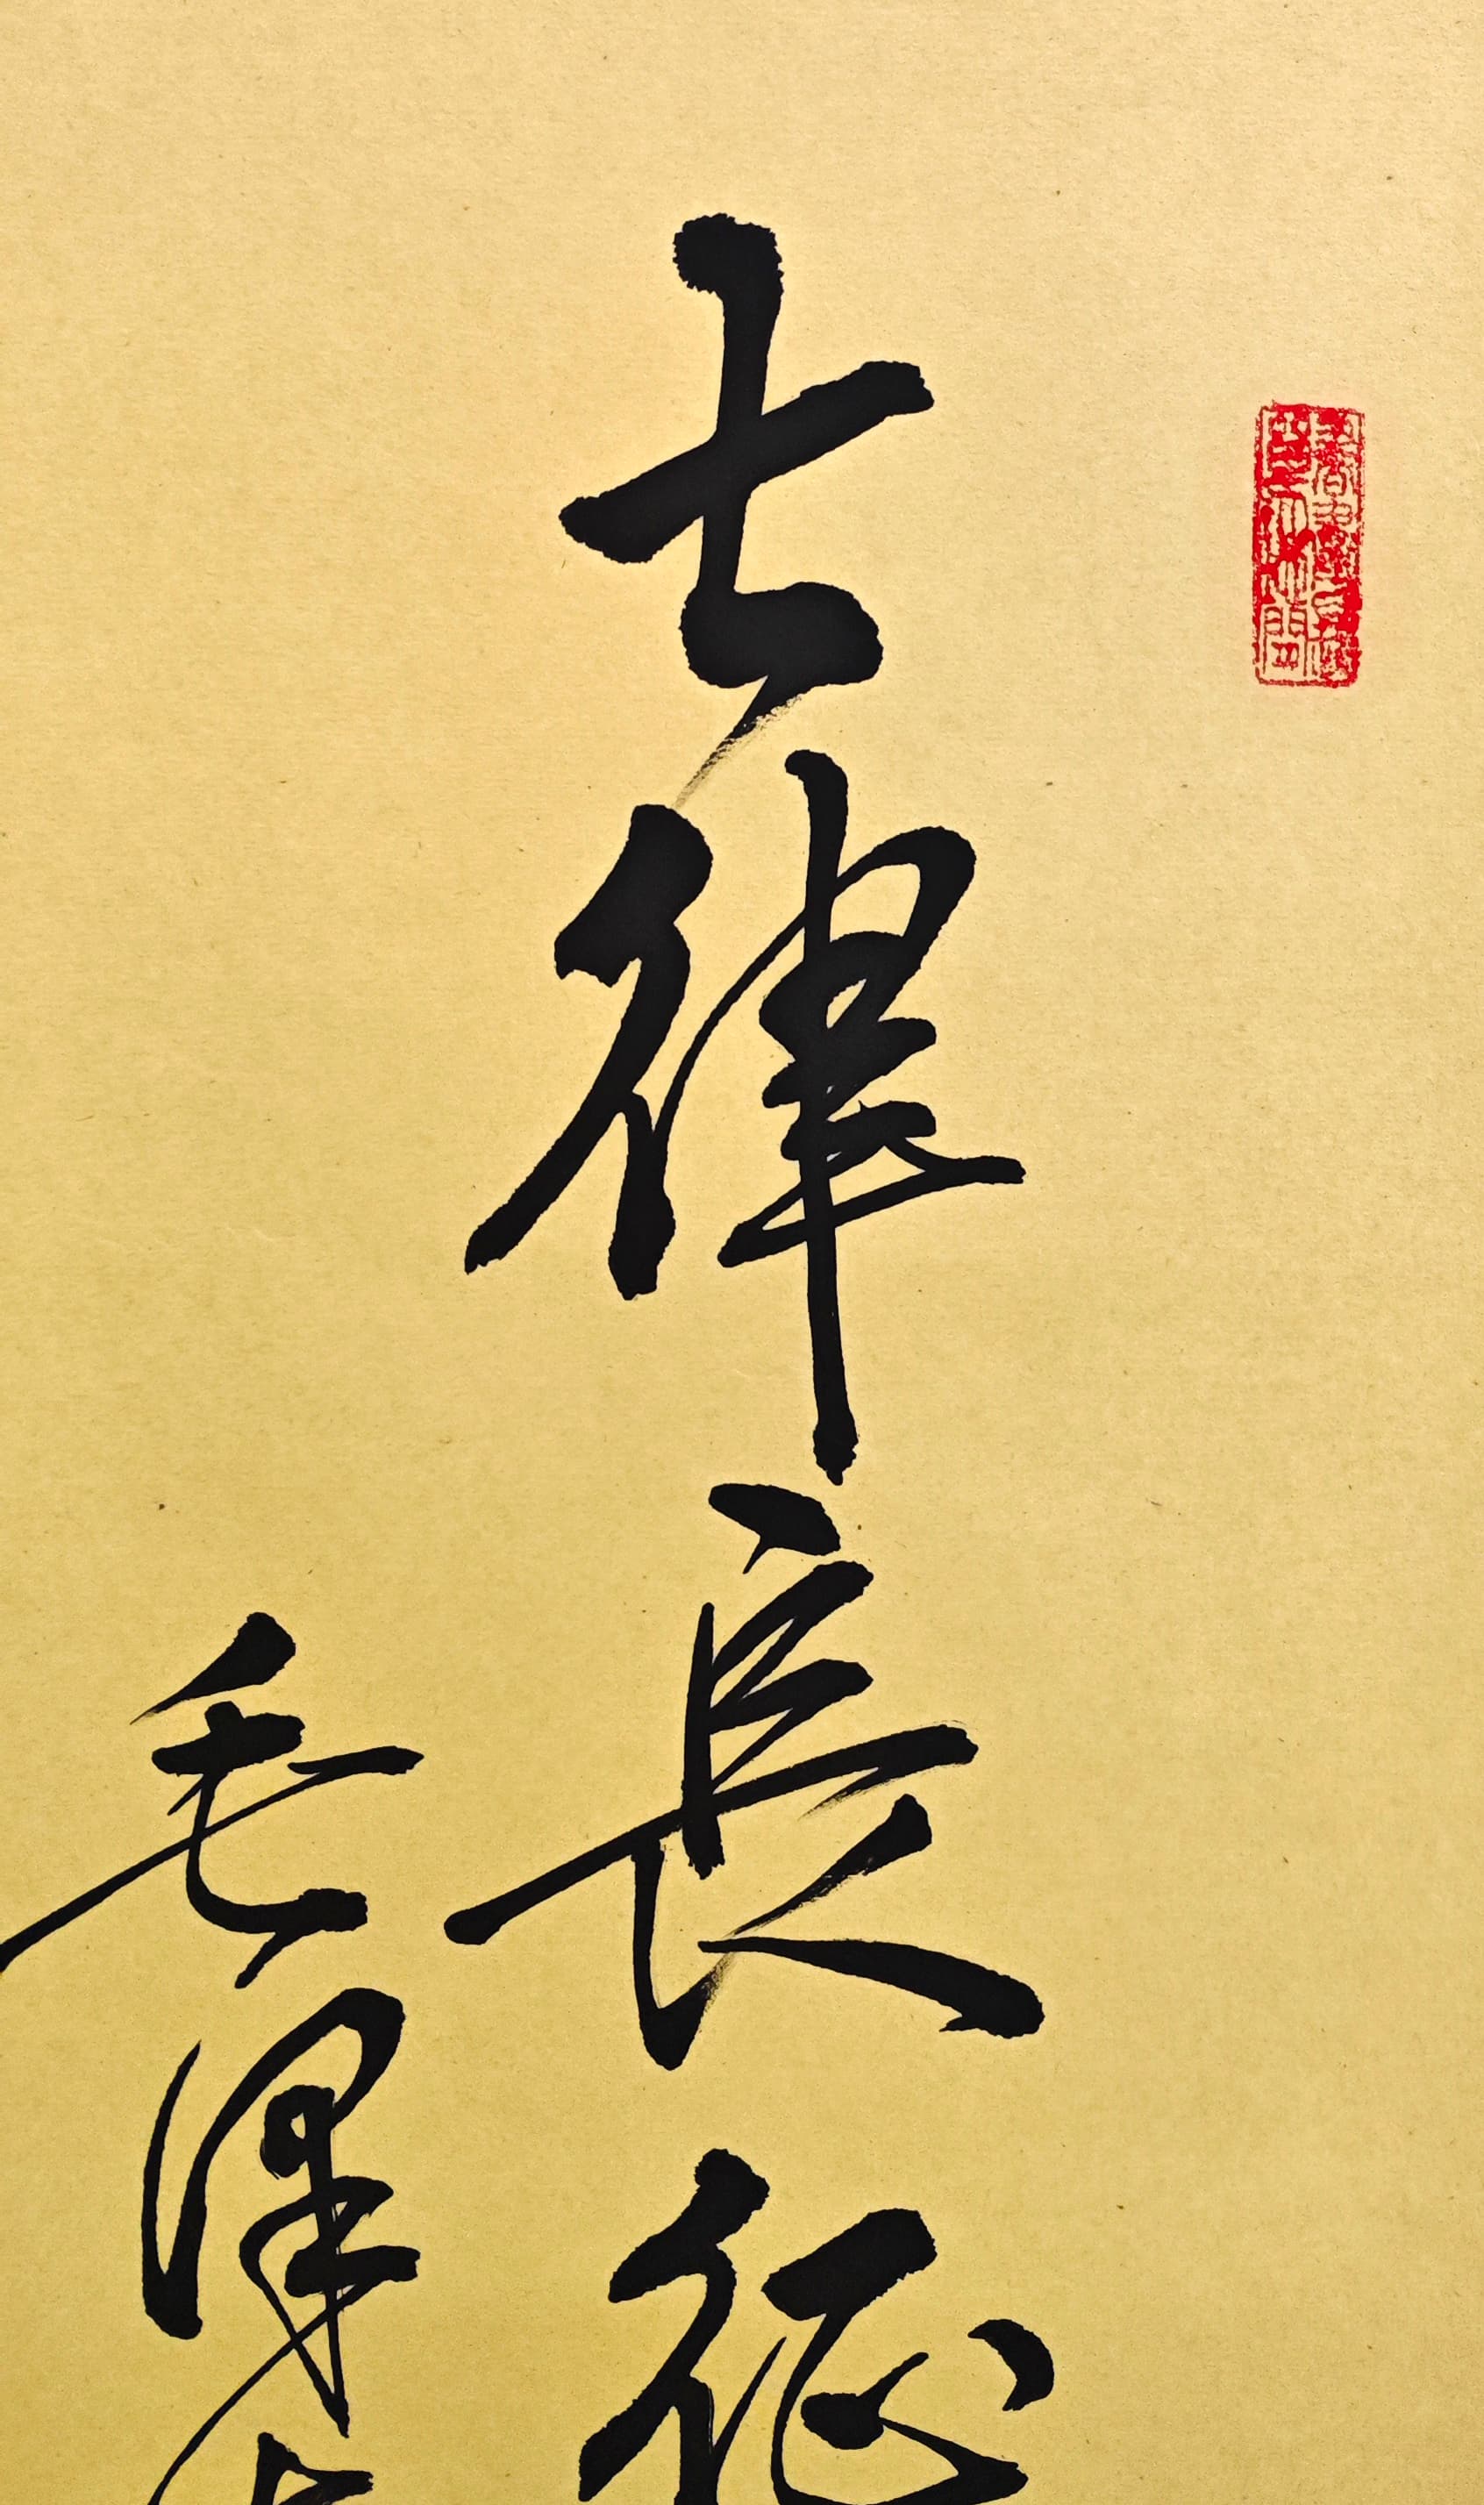 七律長征
毛澤东